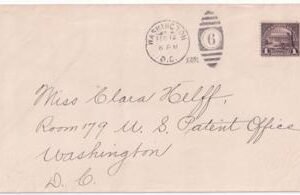 WASHINGTON
FEB 12
6 PM
D.C.
6
1
Miss Clara Helff,
Room 179 U. S. Patent Office
Washington
D. C.